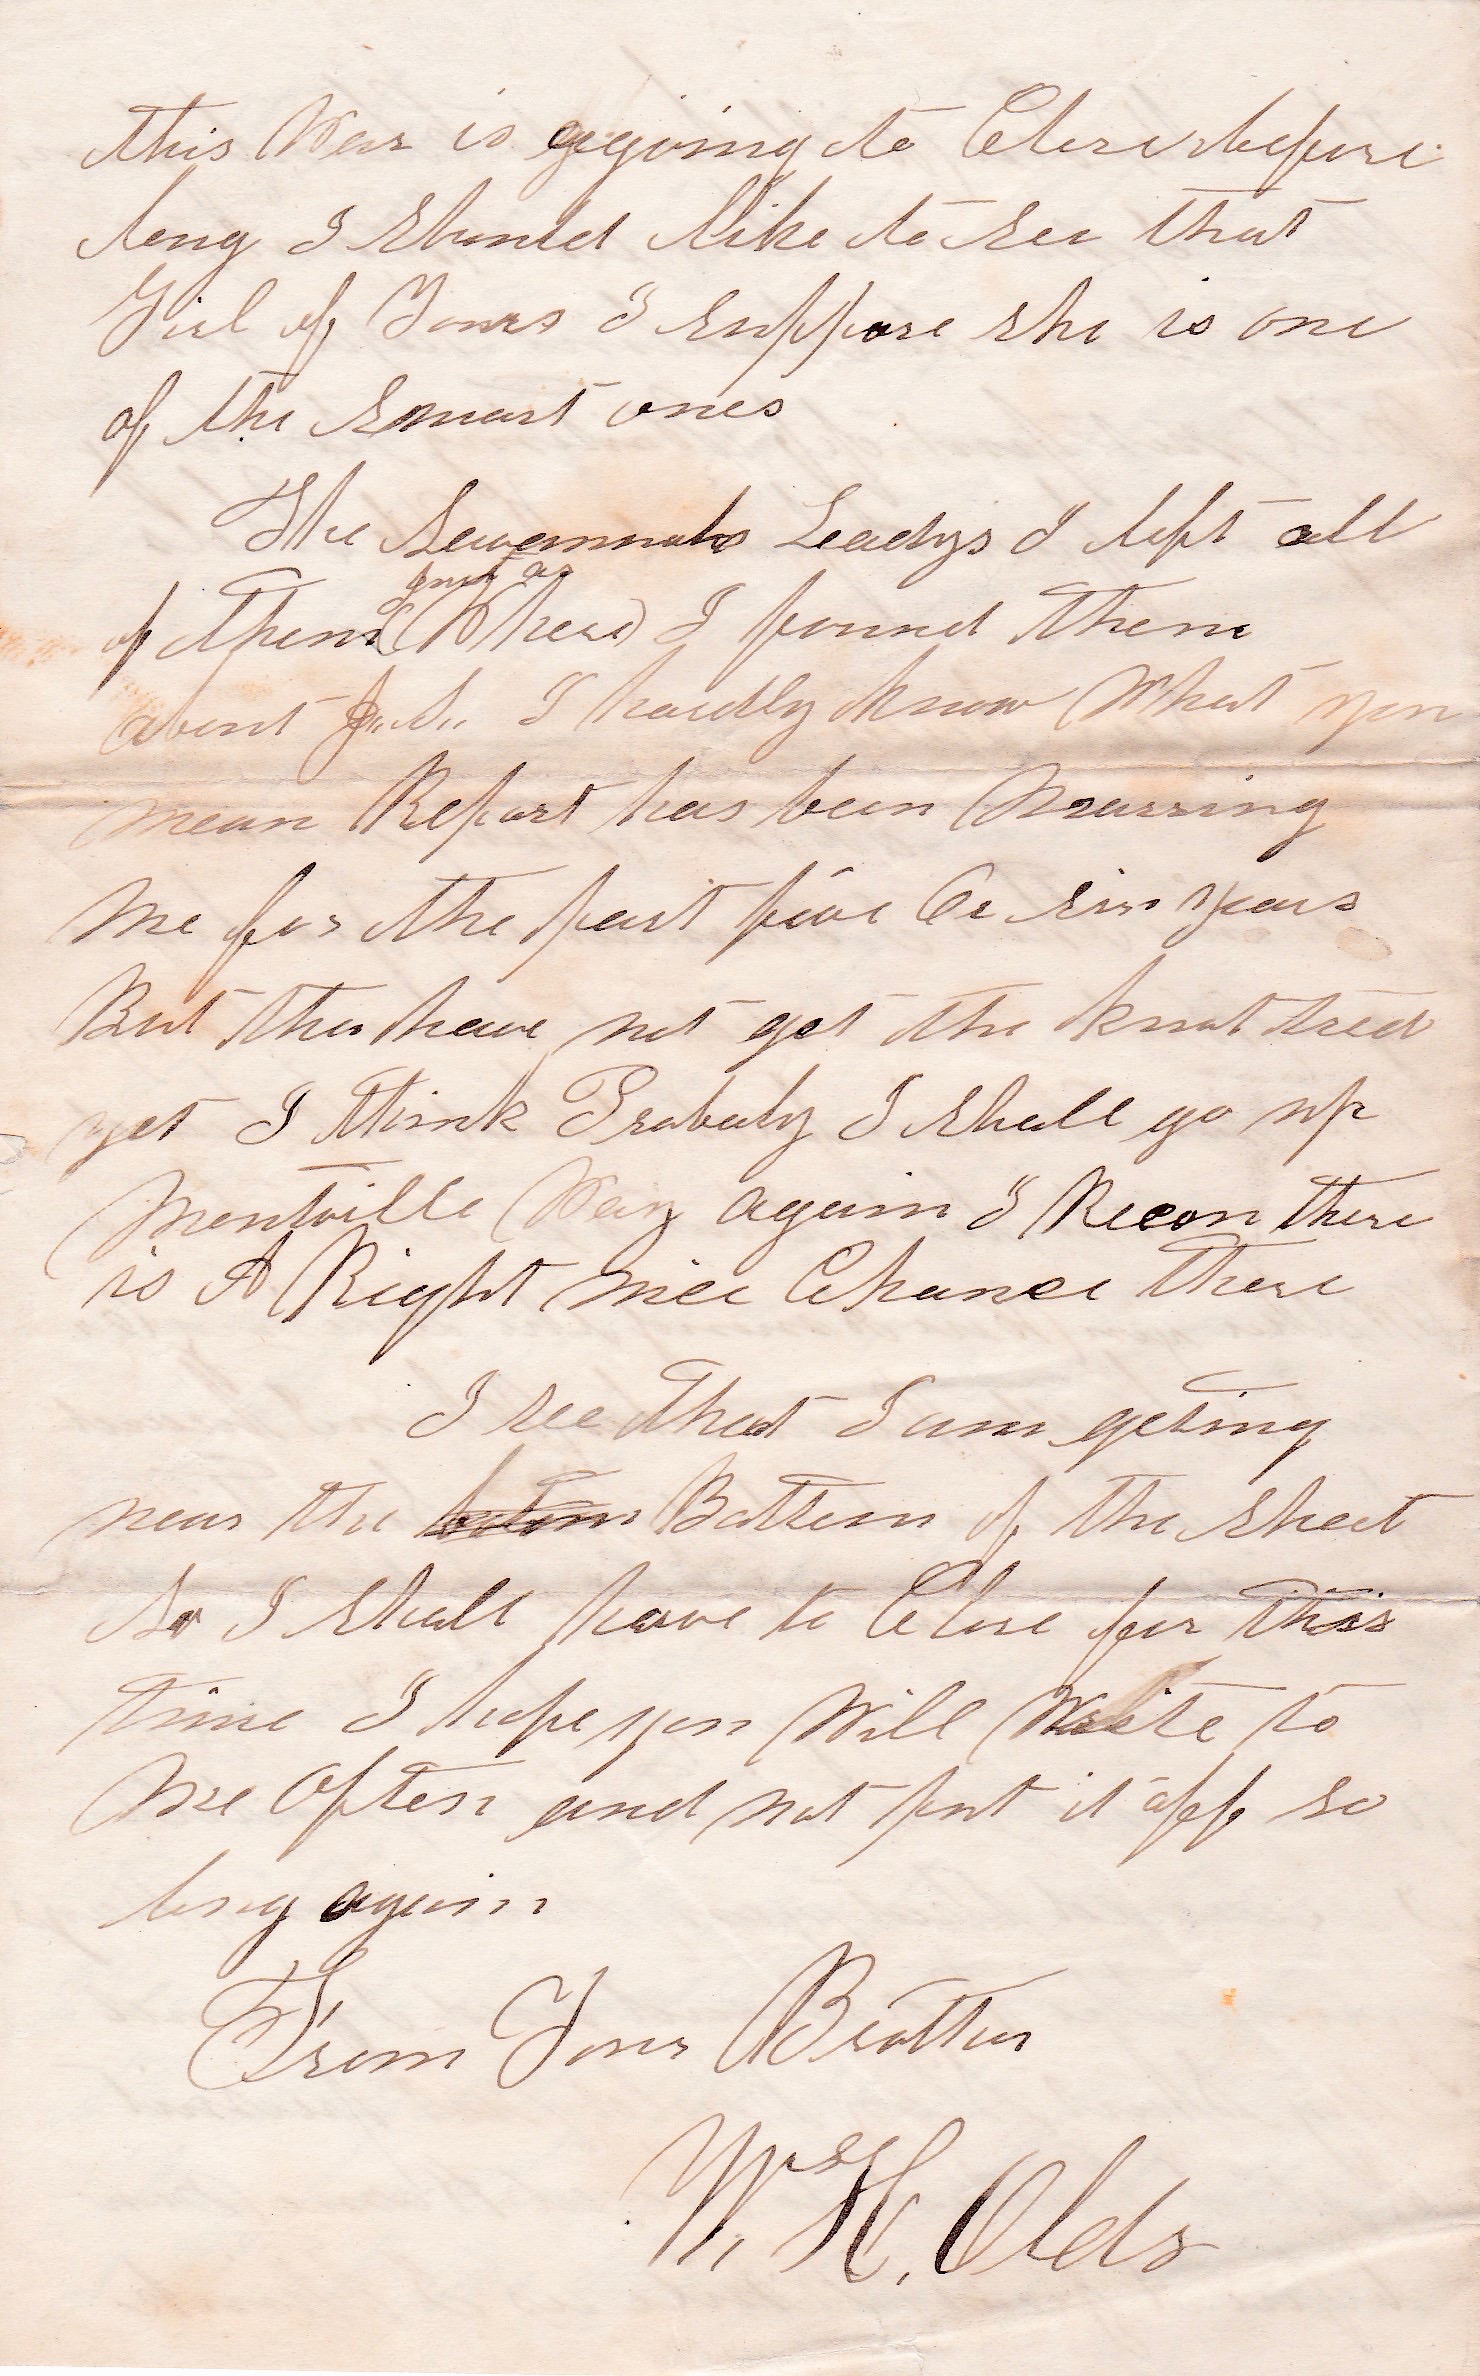 this War is ggoing to Close before
long I should like to See that
Girl of Yours I suppose she is one
of the Smart ones
The Sevannahs Leadys I left all
just as
of them (Where) I found them
about J.. S.. I hardly know What you
mean Report has been Marring
Me for the past five Or six years
But tha have not got the knot tied
yet I think Probaly I shall go up
Montville Way again I Recon there
is A Right nice Chance there
I see that I am geting
near the Bottem of the sheet
So I shall have to Close for this
time I hope you Will Write to
Me Often and not put it off so
long again
From Your Brother
W. H. Olds